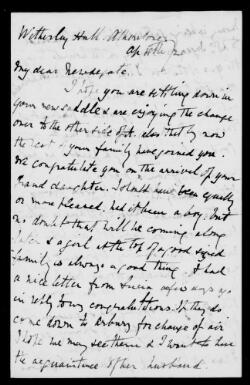 Witherley Hall. Atherstone
My dear Newdegate.
I hope you are settling down in
your new saddle & are enjoying the change
over to the other side &c. also that by now
the rest of your family have joined you.
We congratulate you on the arrival of your
Grand daughter. I should have been equally
or more pleased, had it been a boy, but
no doubt that will be coming along
later & a girl at the top of a good sized
family is always a good thing. I had
a nice letter from Lucia a few days ago
in reply to my congratulations. If they do
come down to Arbury for change of air
I hope we may see them & I want to have
the acquaintance of her husband.